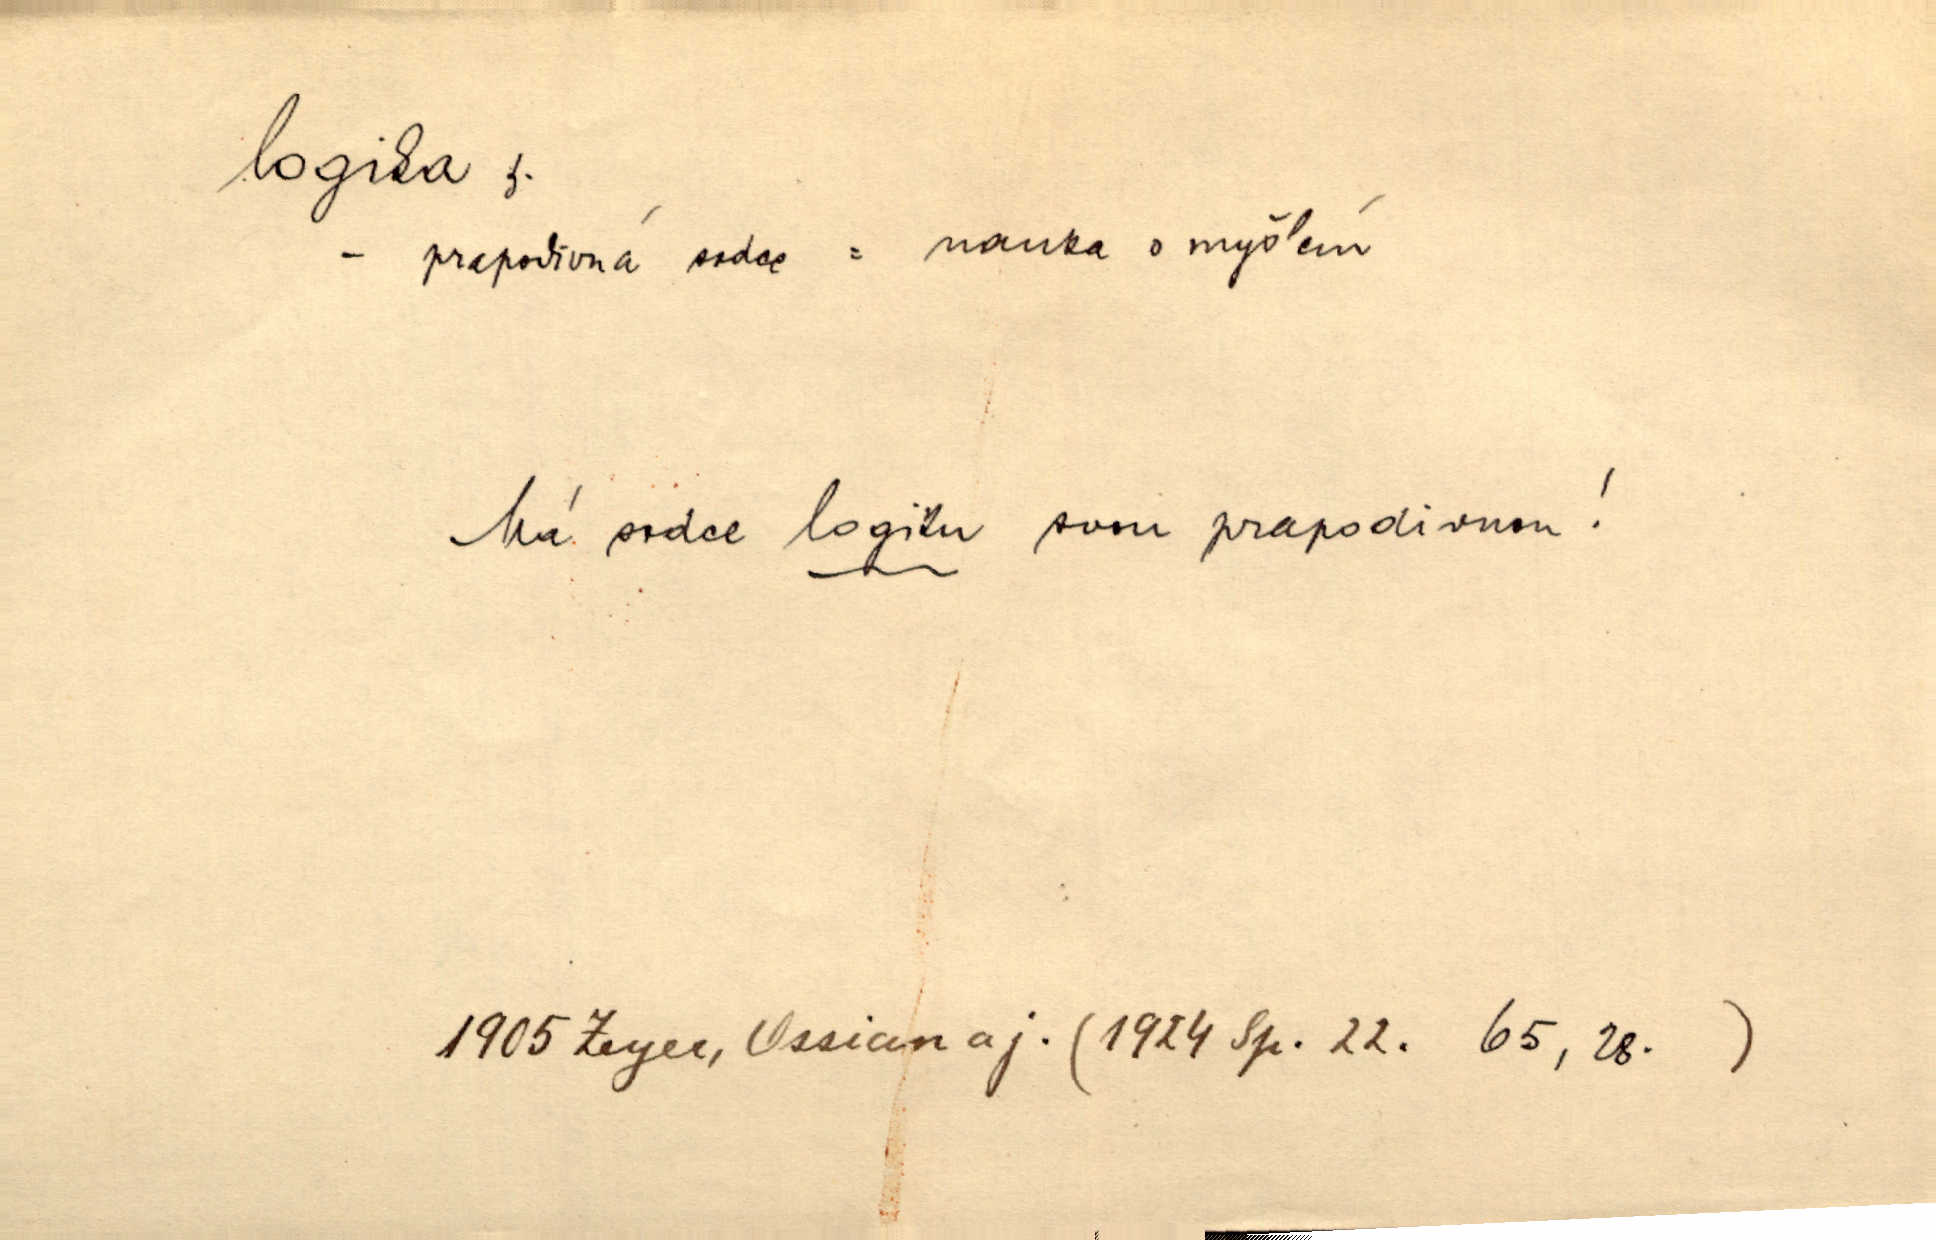 logika ž.
- prapodivná srdce = nauka o myšlení
Má srdce logiku svou prapodivnou!
1905 Zeyer, Ossian aj. (1924 Sp. 22. 65, 28. )